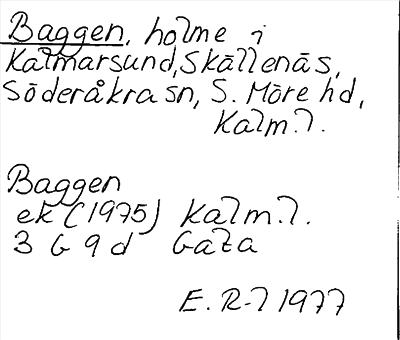 Baggen, holme i
Kalmarsund, Skällenäs,
Söderåkra sn, S. Möre hd,
Kalm. l.
Baggen
ek (1975) Kalm. l.
3 G 9 d Gata
E. R-l 1977